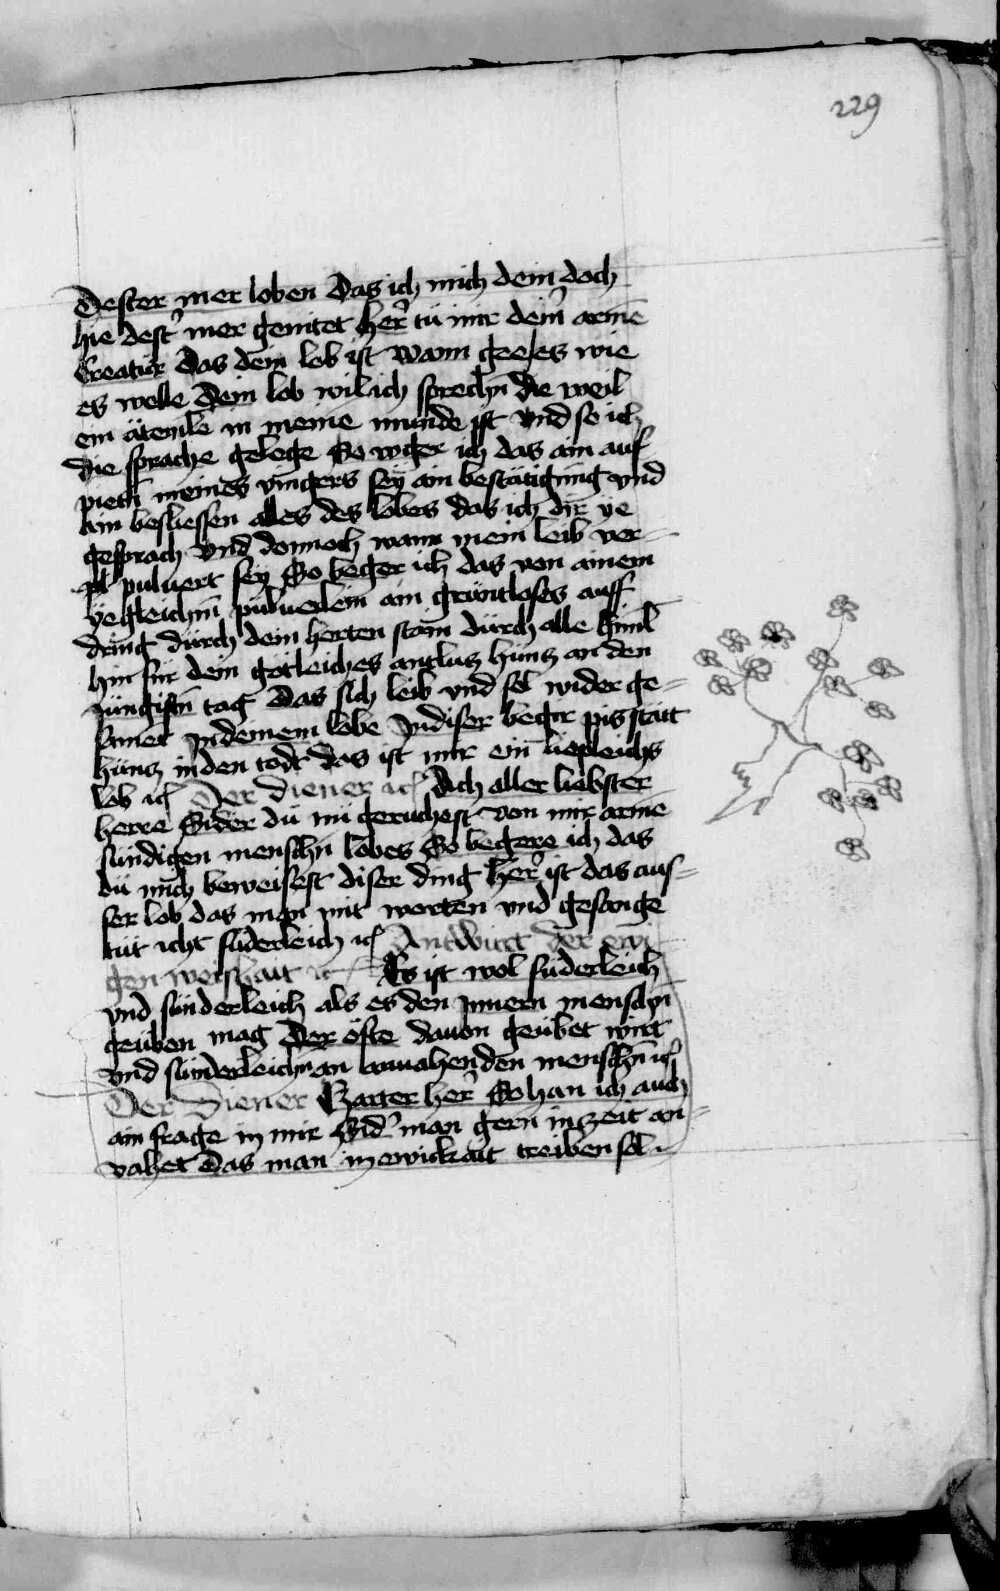 229
Dester mer loben Das ich mich dein doch
hie dest' mer genitet her' tü mir dein' arme
Creatür Das dein lob ist Wann gee es wie
es welle Dein lob wil ich sprechn die weil
ein ätemle in meine munde ist Vnd so ich
die sprache gelege So weger ich das ain auf
pieth meines vingers sey ain bestätigung vnd
ain besliessen alles des lobes das ich dir ye
gesprach Vnd dennoch wann mein leib ver-
pulvert sey So beger ich das von ainem
yegleichm pulverlein ain gruntloses auff
dring dürch dein herten stain dürch alle himl
hin für dein götleiches antlütz huntz an den
Jüngistn tag Das sich leib vnd sel wider ge=
samet Jn deinem lobe Jn diser beger pis statt
huntz in den todt das ist mir ein liepleichs
lob ic Der Diener ic Ach aller liebster
herre Sider dü nü geruchest von mir arme
sündigen menschn lobes So begere ich das
dü mich beweisest diser ding her' ist das aus-
ser lob das man mit worten vnd gesange
tüt icht füderleich ic Antwürt der ewi
gen weishait ic Es ist wol füderleich
vnd sünderleich als es den jnnern menschn
geüben mag Der öfte dauon geübet wirt
vnd sünderleichn an anuahenden menschn ic
Der Diener Zarter her' So han ich auch
ain frage in mir Sid' man gern in zeit an=
vahet Das man in ewickait treiben sol.